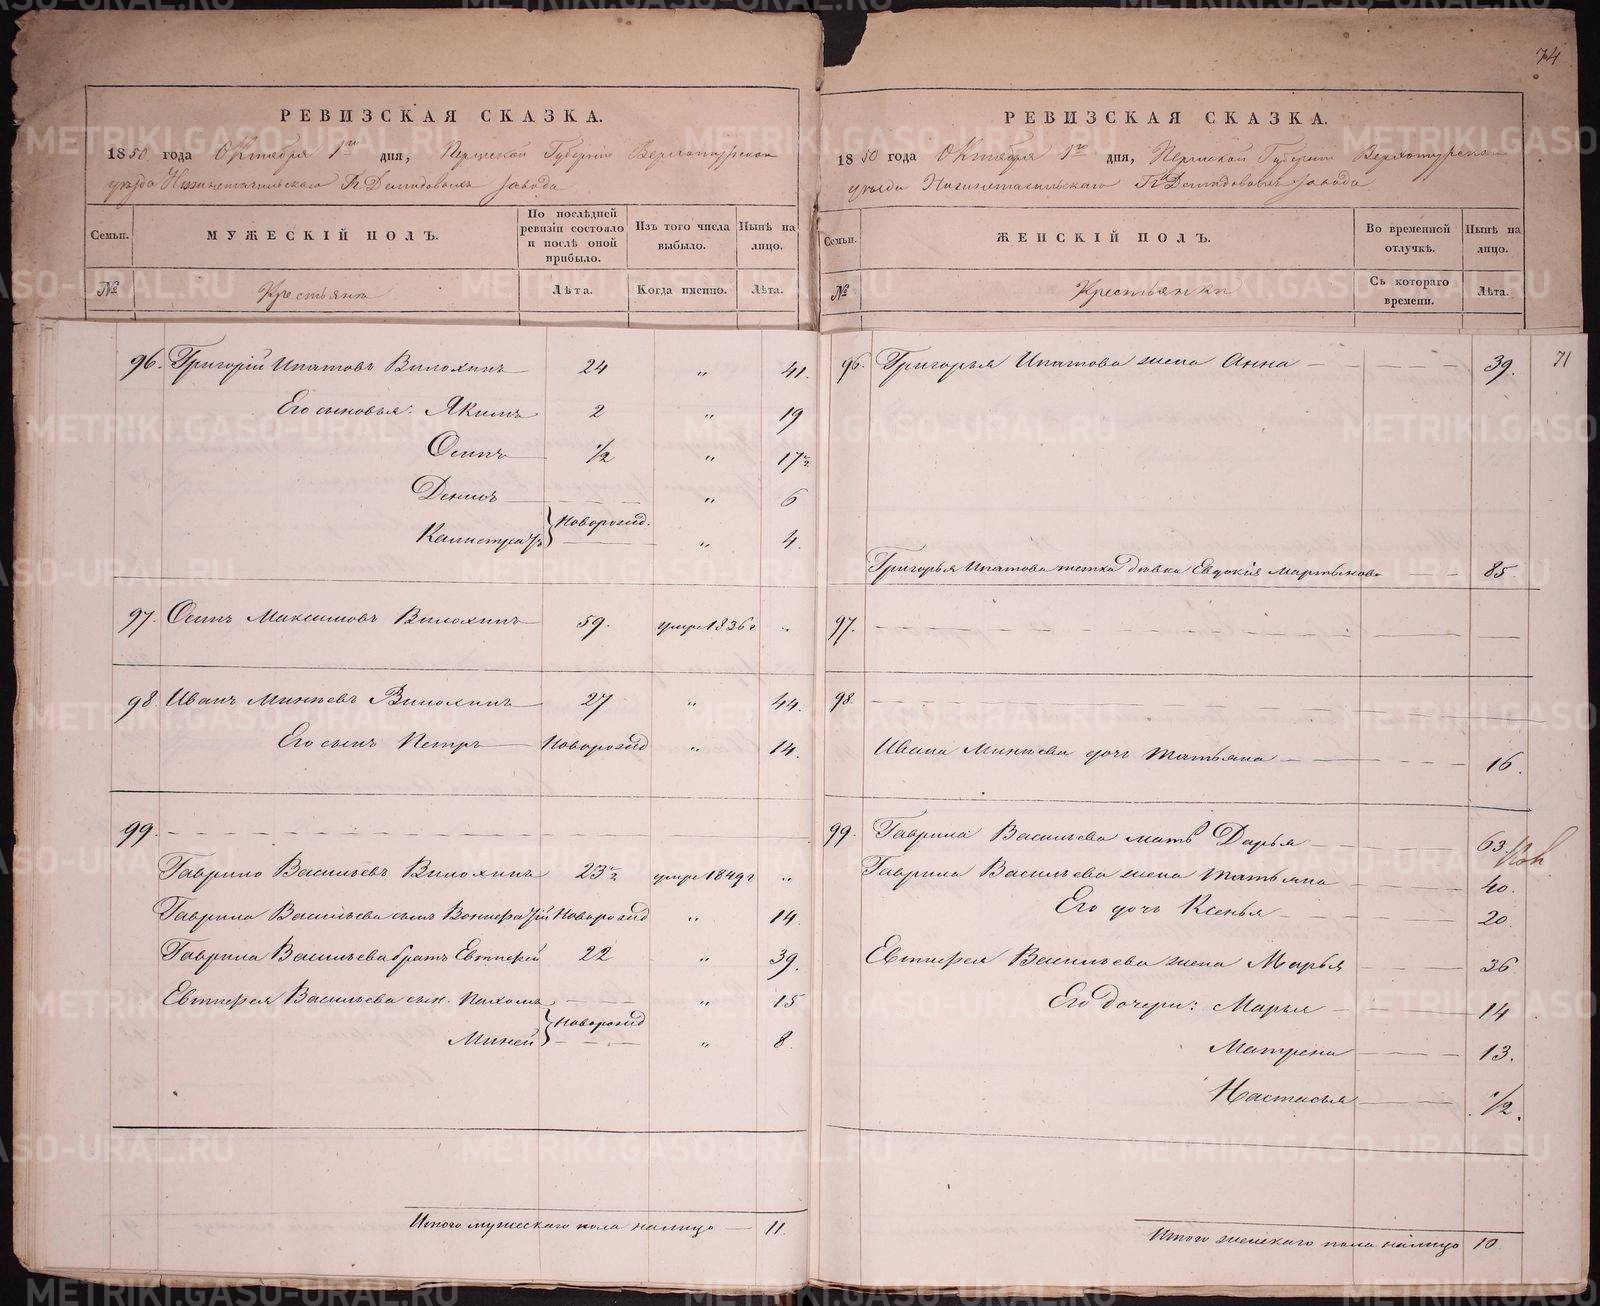 74
РЕВИЗСКАЯ СКАЗКА.
1850 года Октября 1го дня, Пермской Губернии Верхотурскаго
уѣзда Нижнетагильскаго Гг. Демидовыхъ завода
Семьи.
МУЖЕСКІЙ ПОЛЪ.
По послѣдней ревизіи состояло и послѣ оной прибыло.
Изъ того числа выбыло.
Нынѣ на лицо.
№
Крестьяне
Лѣта.
Когда именно.
Лѣта.
96. Григорій Ипатовъ Вилохинъ 24 „ 41.
Его сыновья: Якимъ 2 „ 19
Осипъ 1/2 „ 17 1/2
Денисъ „ 6
Новорожд.
Калистратъ „ 4.
97. Осипъ Максимовъ Вилохинъ 59. умре 1836 г „
98. Иванъ Минѣевъ Вилохинъ 27 „ 44.
Его сынъ Петръ Новорожд „ 14.
99.
Гаврило Васильевъ Вилохинъ 23 1/2 умре 1849 г „
Гаврила Васильева сынъ Новорожд „ 14.
Гаврила Васильева братъ Евтифей 22 „ 39.
Евтифея Васильева сын. Пахомъ „ 15
Новорожд
Миней „ 8
Итого мужескаго пола налицо 11.
РЕВИЗСКАЯ СКАЗКА.
1850 года Октября 1го дня, Пермской Губерніи Верхотурскаго
уѣзда Нижнетагильскаго Гг. Демидовыхъ завода
Семьи.
ЖЕНСКІЙ ПОЛЪ.
Во временной отлучкѣ.
Нынѣ на лицо.
№
Крестьянки
Съ котораго времени.
Лѣта.
96. Григорья Ипатова жена Анна 39. 71
Григорья Ипатова тетка дѣвка Евдокія Мартынова 85.
97.
98.
Ивана Минѣева дочь Татьяна 16.
99. Гаврила Васильева мать Дарья 63.
Гаврила Васильева жена Татьяна 40.
Его дочь Ксенья 20.
Евтифея Васильева жена Марья 36
Его дочери: Марья 14
Матрена 13.
Настасья 1/2.
Итого женскаго пола налицо 10
METRIKI.GASO-URAL.RU